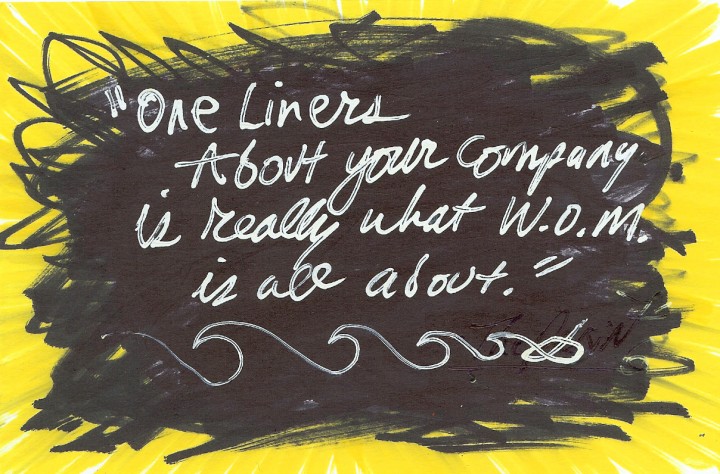 "One Liners
About your company
is really what W.O.M.
is all about."